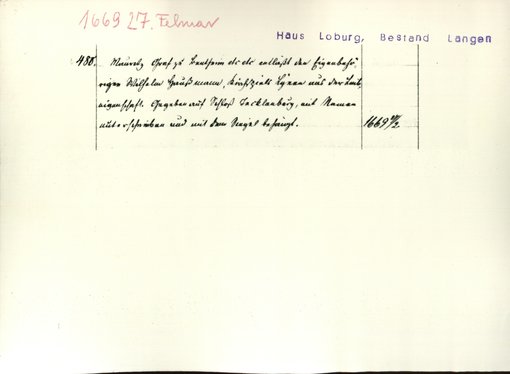 1669 27. Februar
Haus Loburg, Bestand Langen
488. Mauritz Graf zu Bentheim etc etc entläßt den Eigenbehö-
rigen Wilhelm Hausmann, Kirchspiels Lienen aus der Leib-
eigenschaft. Gegeben auf Schloß Tecklenburg, mit Namen
unterschrieben und mit dem Siegel behängt. 1669 27/2